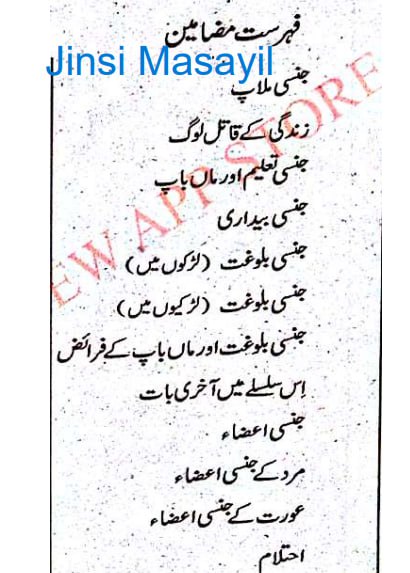 فہرست مضامین
Jinsi Masayil
جنسی ملاپ
زندگی کے قاتل لوگ
جنسی تعلیم اور ماں باپ
جنسی بیداری
جنسی بلوغت (لڑکوں میں)
جنسی بلوغت (لڑکیوں میں)
جنسی بلوغت اور ماں باپ کے فرائض
اِس سلسلے میں آخری بات
جنسی اعضاء
مرد کے جنسی اعضاء
عورت کے جنسی اعضاء
احتلام
EW APP STORE